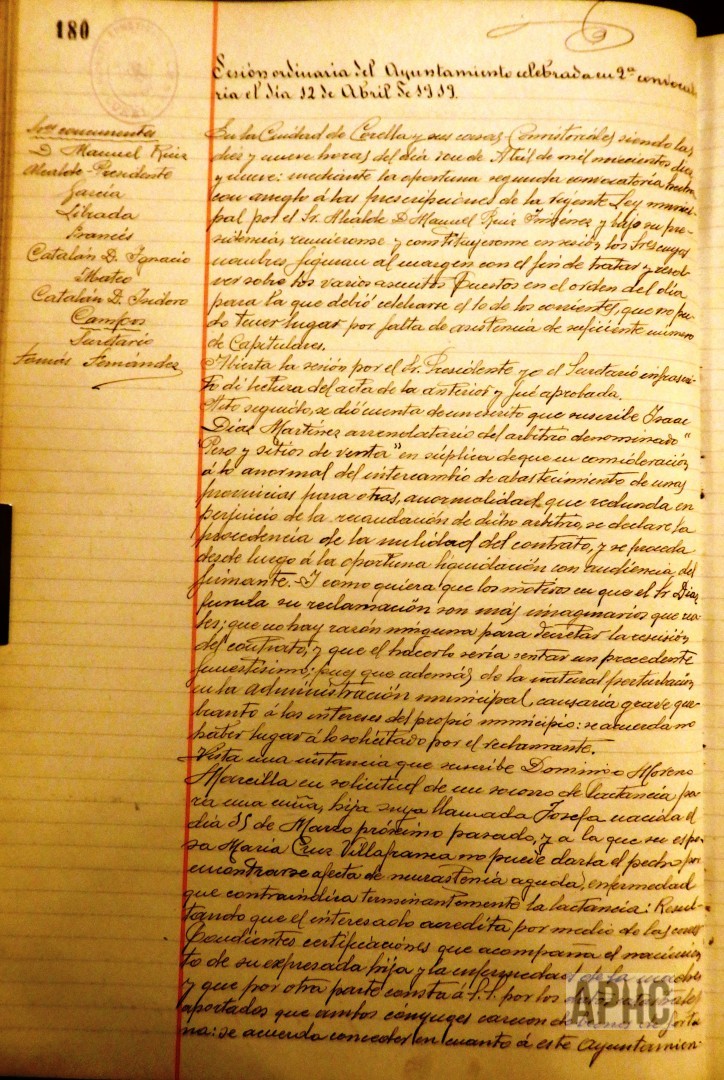 180
Sesión ordinaria del Ayuntamiento celebrada en 2ª convocato
ria el día 12 de Abril de 1919.
Sres concurrentes
D. Manuel Ruiz
Alcalde-Presidente
García
Librada
Francés
Catalán D. Ignacio
Mateo
Catalán D. Isidoro
Campos
Secretario
Tomás Fernández
En la Ciudad de Corella y sus casas Consistoriales siendo las
diez y nueve horas del día doce de Abril de mil novecientos diez
y nueve: mediante la oportuna segunda convocatoria hecha
con arreglo á las prescripciones de la vigente Ley munici-
pal por el Sr. Alcalde D. Manuel Ruiz Jiménez y bajo su pre-
sidencia, reunieronse y constituyeronse en sesión los Sres cuyos
nombres figuran al margen con el fin de tratar y resol-
ver sobre los varios asuntos puestos en el orden del día
para la que debió celebrarse el 10 de los corrientes, que no pu-
do tener lugar por falta de asistencia de suficiente número
de Capitulares.
Abierta la sesión por el Sr. Presidente yo el Secretario infrascri-
to dí lectura del acta de la anterior y fué aprobada.
Acto seguido, se dió cuenta de un escrito que suscribe Isaac
Díaz Martínez arrendatario del arbitrio denominado "
Peso y sitios de venta" en súplica de que en consideración
á lo anormal del intercambio de abastecimiento de unas
provincias para otras, anormalidad que redunda en
perjuicio de la recaudación de dicho arbitrio, se declare la
procedencia de la nulidad del contrato, y se proceda
desde luego á la oportuna liquidación con audiencia del
firmante. Y como quiera que los motivos en que el Sr. Díaz
funda su reclamación son más imaginarios que rea-
les; que no hay razón ninguna para decretar la rescisión
del contrato, y que el hacerlo sería sentar un precedente
funestísimo; pues que además de la natural perturbación
en la administración municipal, causaría grave que-
branto á los intereses del propio municipio: se acuerda no
haber lugar á lo solicitado por el reclamante.
Vista una instancia que suscribe Domingo Moreno
Marcilla en solicitud de un socorro de lactancia pa-
ra una niña, hija suya llamada Josefa nacida el
día 15 de Marzo próximo pasado, y a la que su espo-
sa María Cruz Villafranca no puede darla el pecho por
encontrarse afecta de neurastenia aguda, enfermedad
que contraindica terminantemente la lactancia: Resul-
tando que el interesado acredita por medio de las corres-
pondientes certificaciones que acompaña el nacimien-
to de su expresada hija y la enfermedad de la madre
y que por otra parte consta á S.S. por los
aportados que ambos cónyuges carecen de fortu
na: se acuerda conceder en cuanto á este Ayuntamien-
APHC